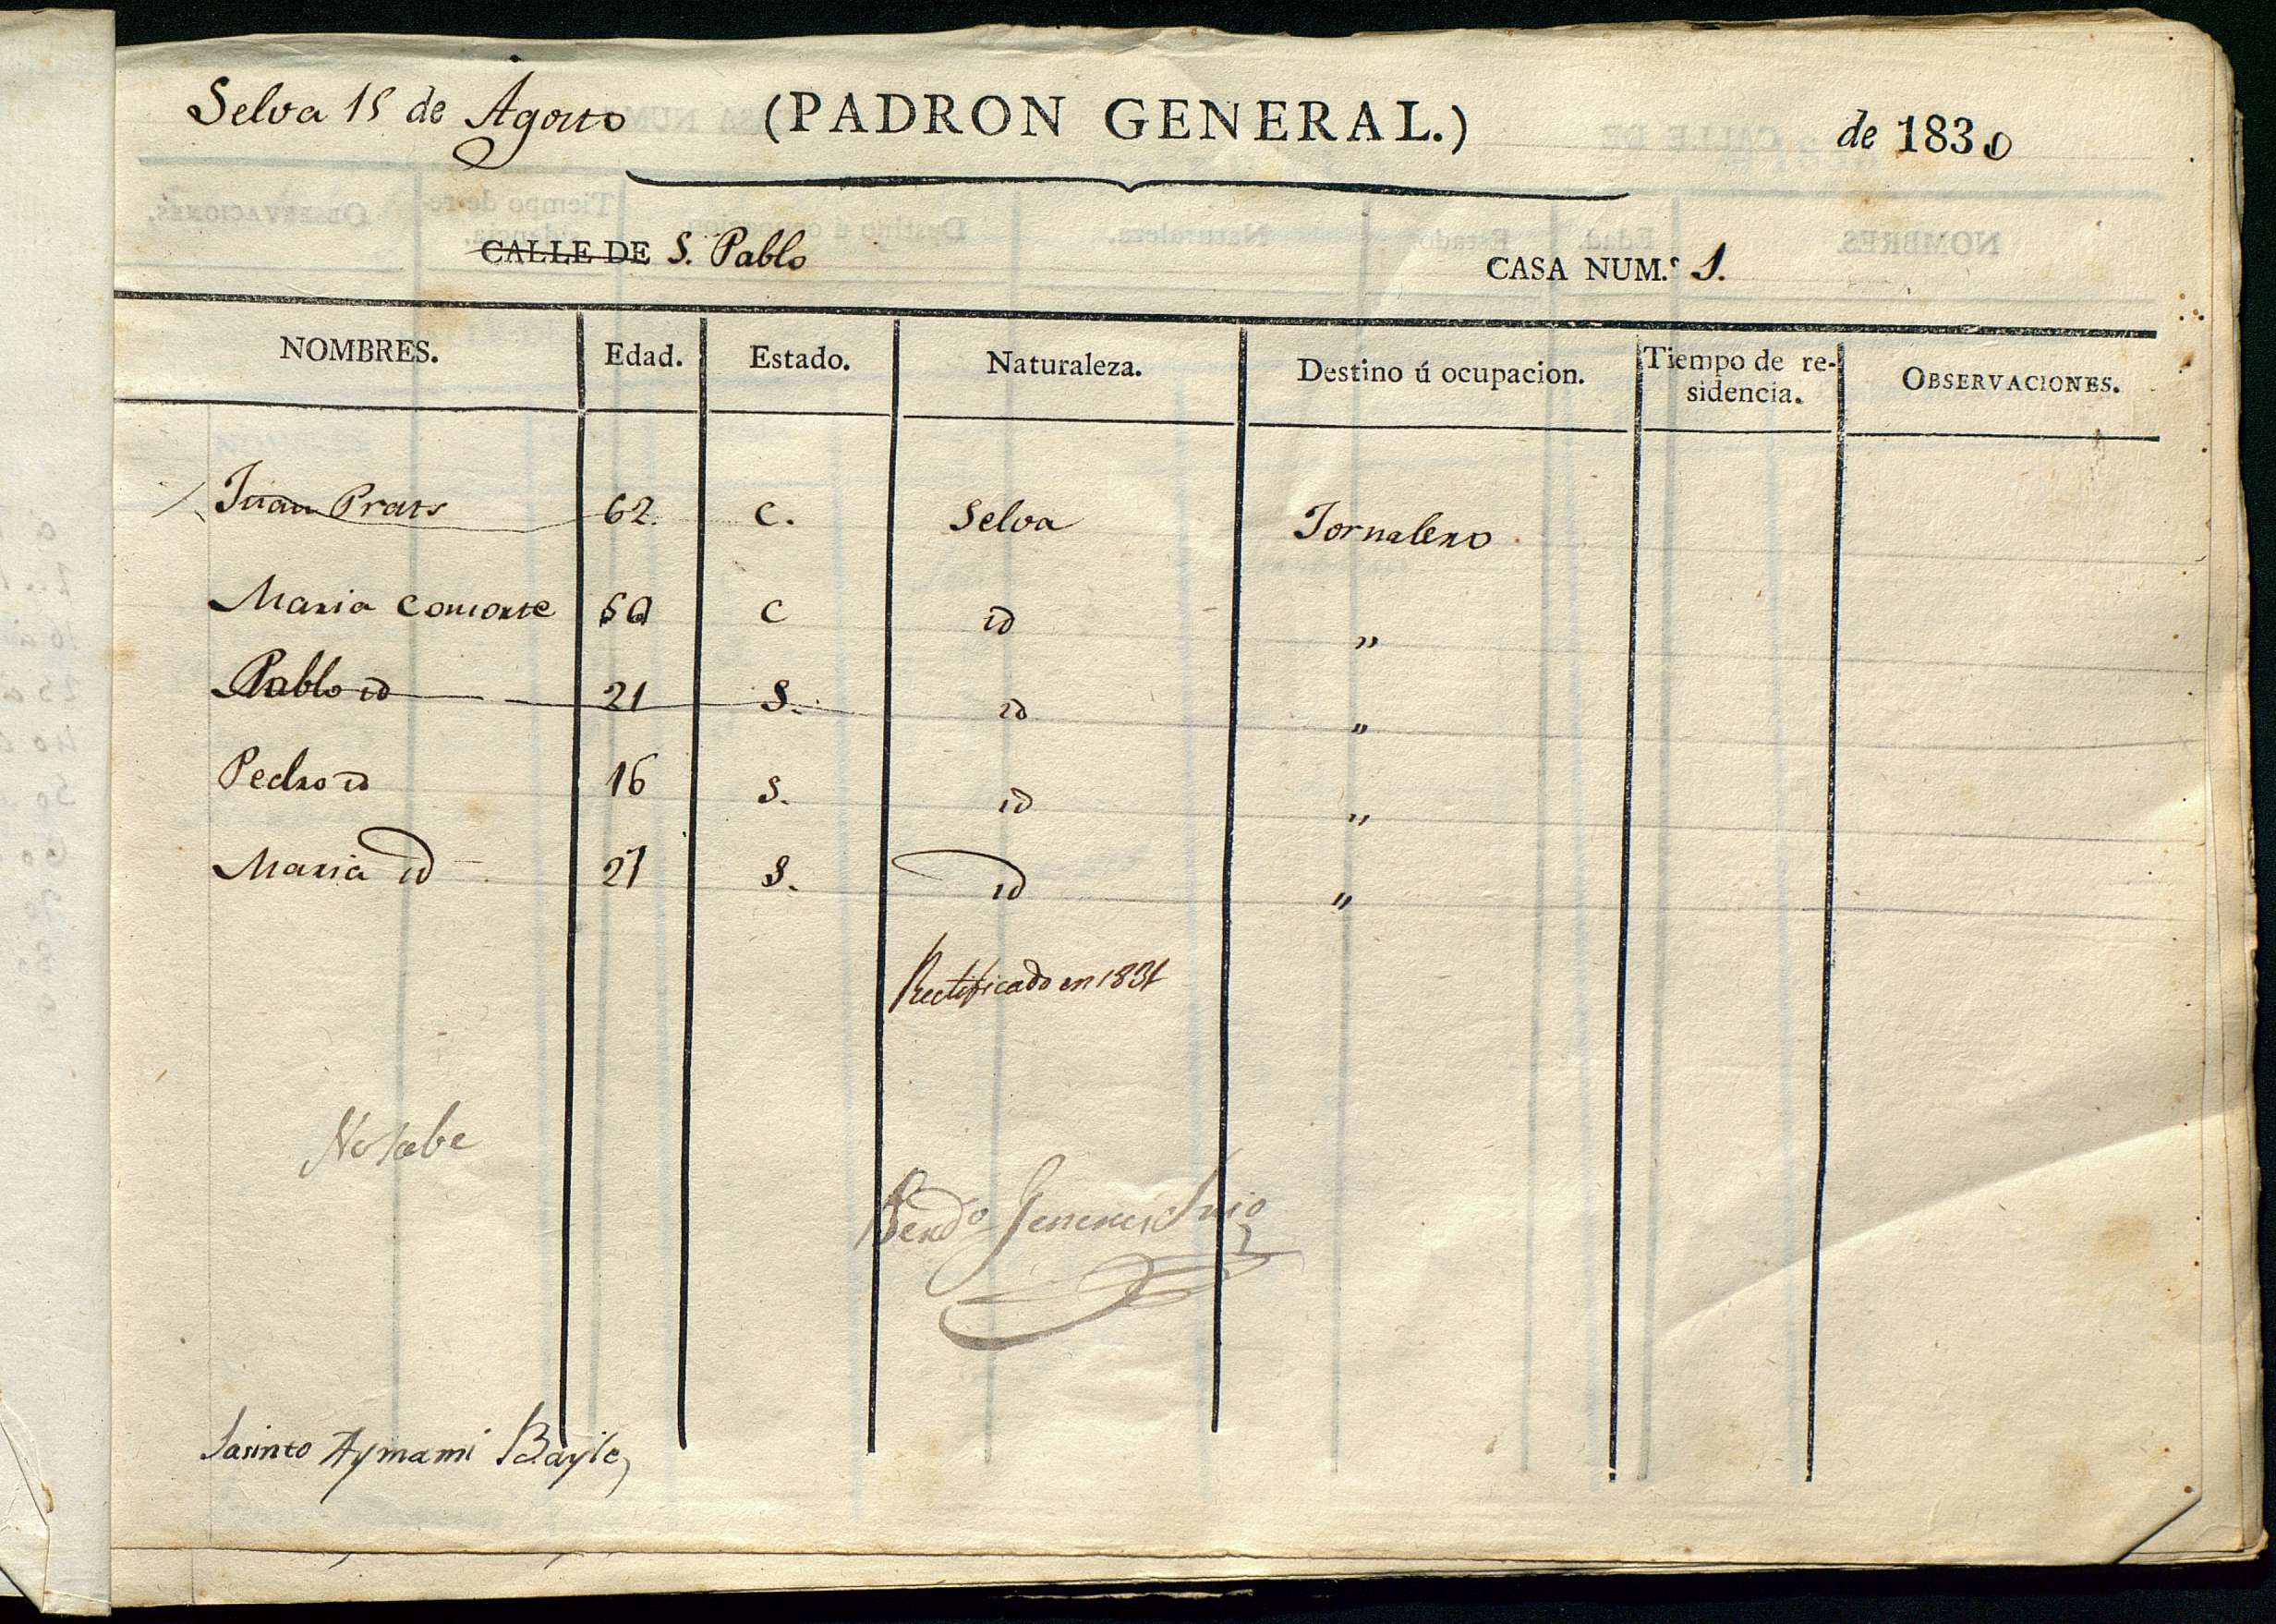 Selva 15 de Agosto (PADRON GENERAL.) de 1830
CALLE DE S. Pablo CASA NUM.º 1.
NOMBRES. Edad. Estado. Naturaleza. Destino ú ocupacion. Tiempo de re-sidencia. OBSERVACIONES.
Juan Prats 62. C. Selva Jornalero
Maria consorte C id "
Pablo id 21 S. id "
Pedro id 16 S. id "
Maria id S. id "
Rectificado en 1831
No sabe
Jasinto Aymami Bayle